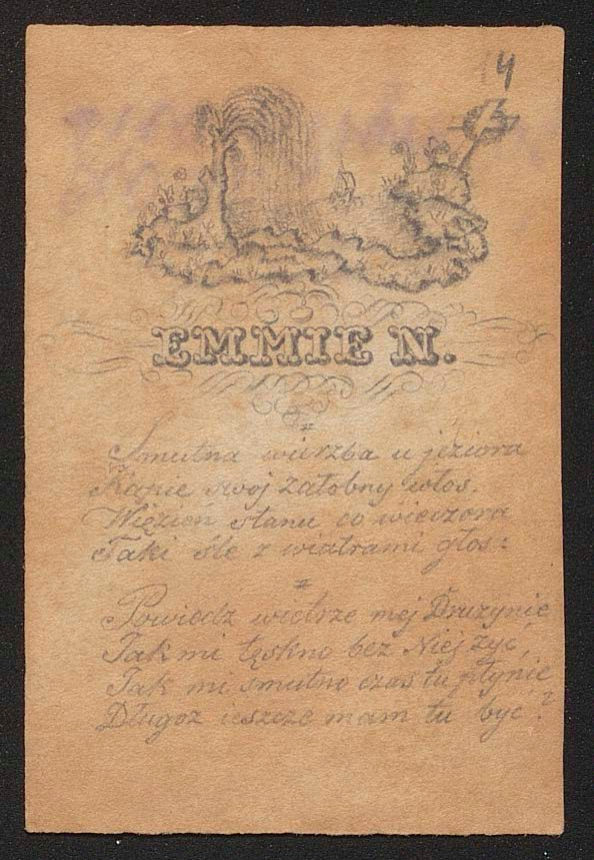 14
EMMIE N.
Smutna wierzba u jeziora
Kąpie swój żałobny włos.
Więzien stanu co wieczora
Taki śle z wiatrami głos:
Powiedz wietrze mej Drużynie
Jak mi tęskno bez Niej żyć,
Jak mi smutno czas tu płynie
Długoż ieszcze mam tu być?